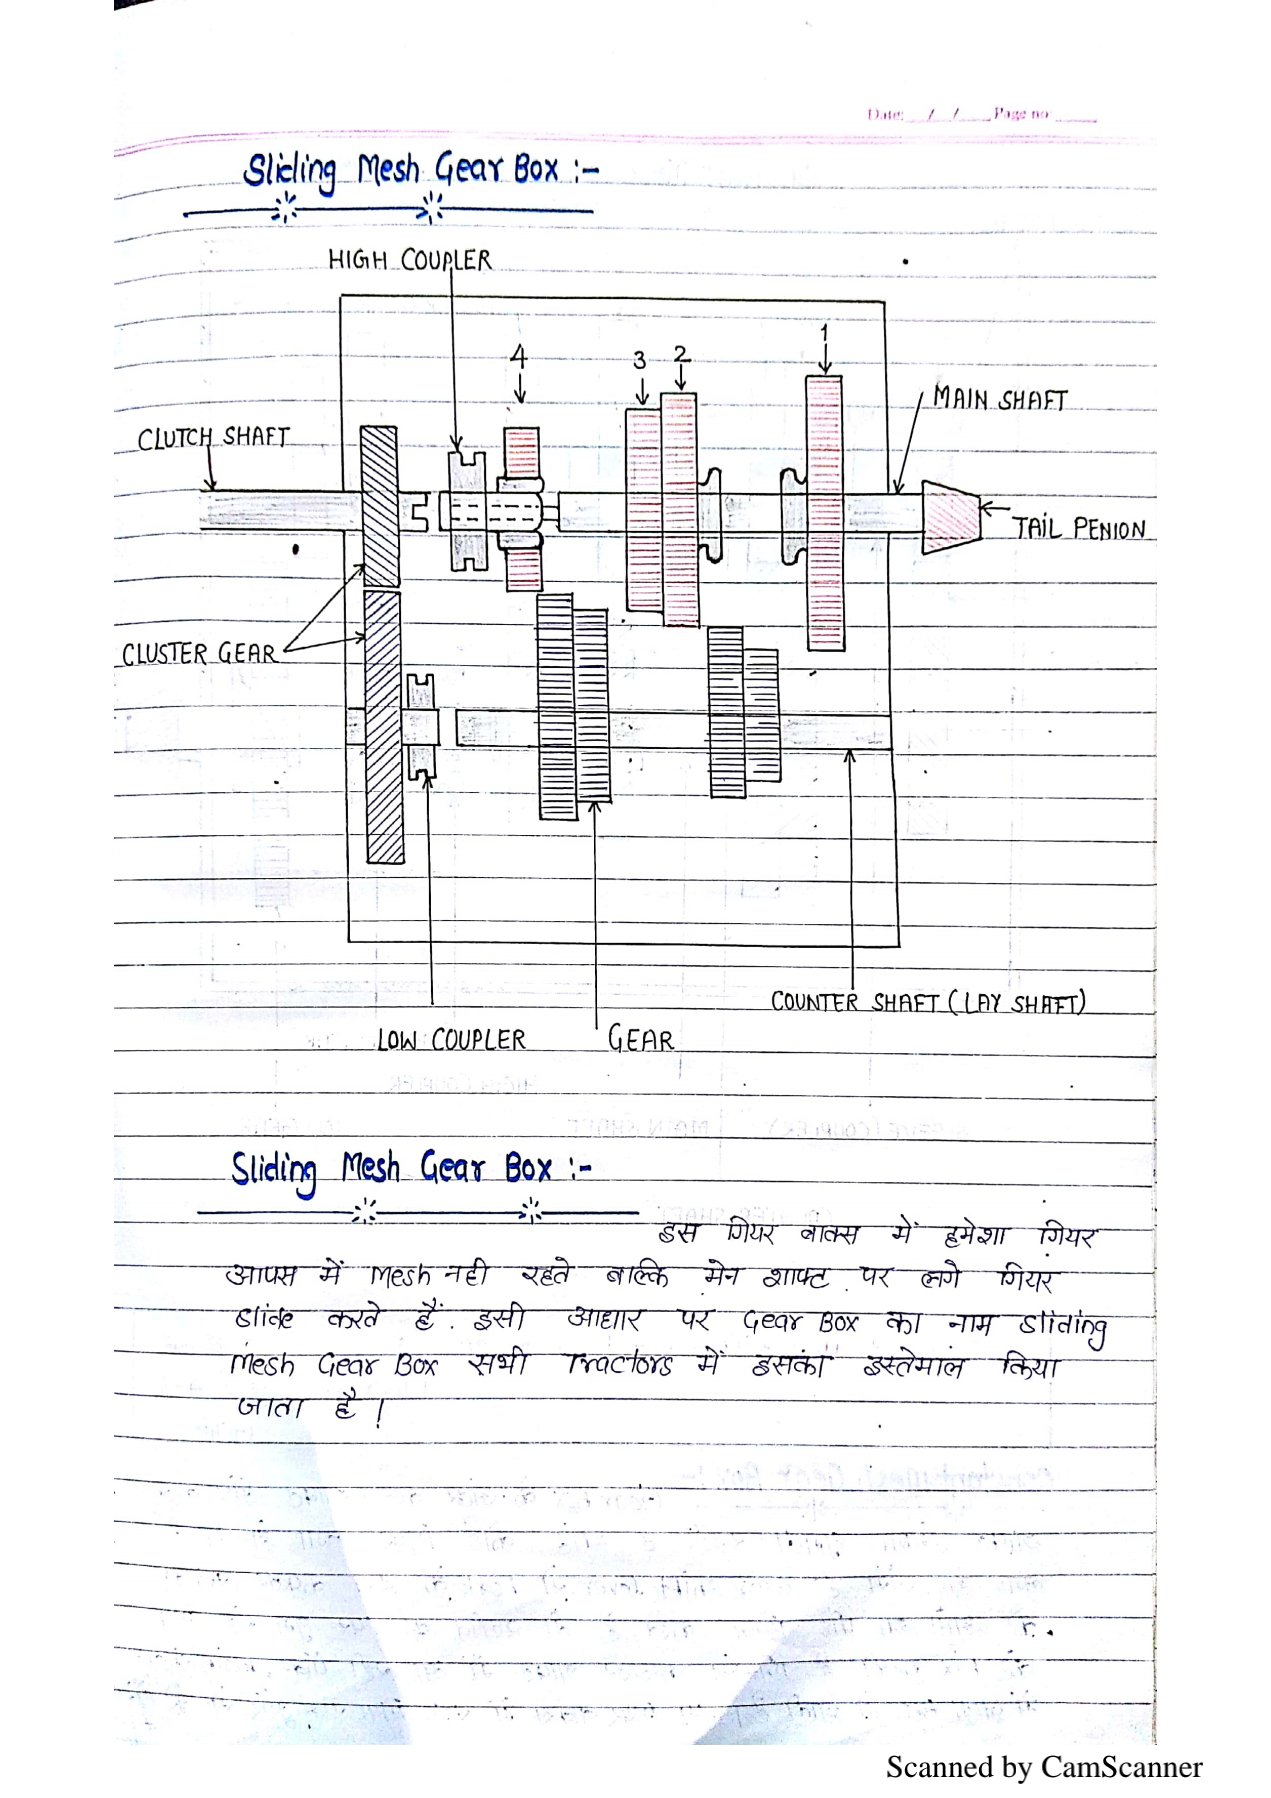 Date: __/__/____ Page no: _____
Sliding Mesh Gear Box :-
HIGH COUPLER
1
4
3
2
MAIN SHAFT
CLUTCH SHAFT
TAIL PENION
CLUSTER GEAR
COUNTER SHAFT (LAY SHAFT)
LOW COUPLER
GEAR
Sliding Mesh Gear Box :-
इस गियर बाक्स में हमेशा गियर
आपस में Mesh नही रहते बाल्कि मेन शाफ्ट पर लगे गियर
Slide करते हैं. इसी आधार पर Gear Box का नाम Sliding
Mesh Gear Box सभी Tractors में इसका इस्तेमाल किया
जाता है।
Scanned by CamScanner